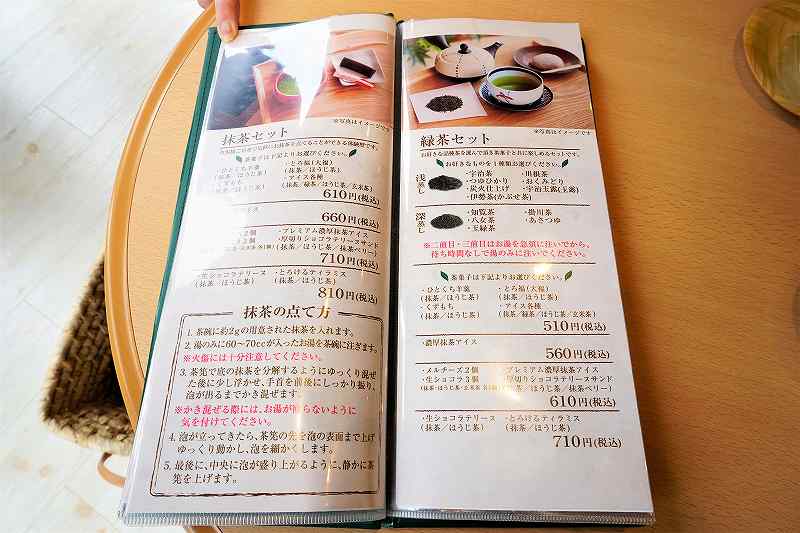 ※写真はイメージです
抹茶セット
茶菓子は下記よりお選びください。
・ひとくち羊羹
(抹茶/ほうじ茶)
・くずもち
(抹茶/ほうじ茶)
・とろ福(大福)
(抹茶/ほうじ茶)
・アイス各種
(抹茶/緑茶/ほうじ茶/玄米茶)
610円(税込)
アイス
660円(税込)
2個
・プレミアム濃厚抹茶アイス
・厚切りショコラテリーヌサンド
(抹茶/ほうじ茶/抹茶ベリー)
710円(税込)
・生ショコラテリーヌ
(抹茶/ほうじ茶)
・とろけるティラミス
(抹茶/ほうじ茶)
810円(税込)
抹茶の点て方
1. 茶碗に約2gの用意された抹茶を入れます。
2. 湯のみに60～70ccが入ったお湯を茶碗に注ぎます。
※火傷には十分注意してください。
3. 茶筅で底の抹茶を分解するようにゆっくり混ぜ
た後に少し浮かせ、手首を前後にしっかり振り、
泡が出るまでかき混ぜます。
※かき混ぜる際には、お湯が散らないように
気を付けてください。
4. 泡が立ってきたら、茶筅の先を泡の表面まで上げ
ゆっくり動かし、泡を細かくします。
5. 最後に、中央に泡が盛り上がるように、静かに茶
筅を上げます。
※写真はイメージです
緑茶セット
お好きな品種茶を選んで頂き茶菓子と共に楽しめるセットです。
お好きなものを1種類お選びください。
浅蒸し
・宇治茶
・つゆひかり
・炭火仕上げ
・伊勢茶(かぶせ茶)
・川根茶
・おくみどり
・宇治玉露(玉露)
深蒸し
・知覧茶
・八女茶
・玉緑茶
・掛川茶
・あさつゆ
※二煎目・三煎目はお湯を急須に注いでから、
待ち時間なしで湯のみに注いでください。
茶菓子は下記よりお選びください。
・ひとくち羊羹
(抹茶/ほうじ茶)
・くずもち
(抹茶/ほうじ茶)
・とろ福(大福)
(抹茶/ほうじ茶)
・アイス各種
(抹茶/緑茶/ほうじ茶/玄米茶)
510円(税込)
・濃厚抹茶アイス
560円(税込)
・メルチーズ2個
・生ショコラ3個
・プレミアム濃厚抹茶アイス
・厚切りショコラテリーヌサンド
(抹茶/ほうじ茶/抹茶ベリー)
610円(税込)
・生ショコラテリーヌ
(抹茶/ほうじ茶)
・とろけるティラミス
(抹茶/ほうじ茶)
710円(税込)